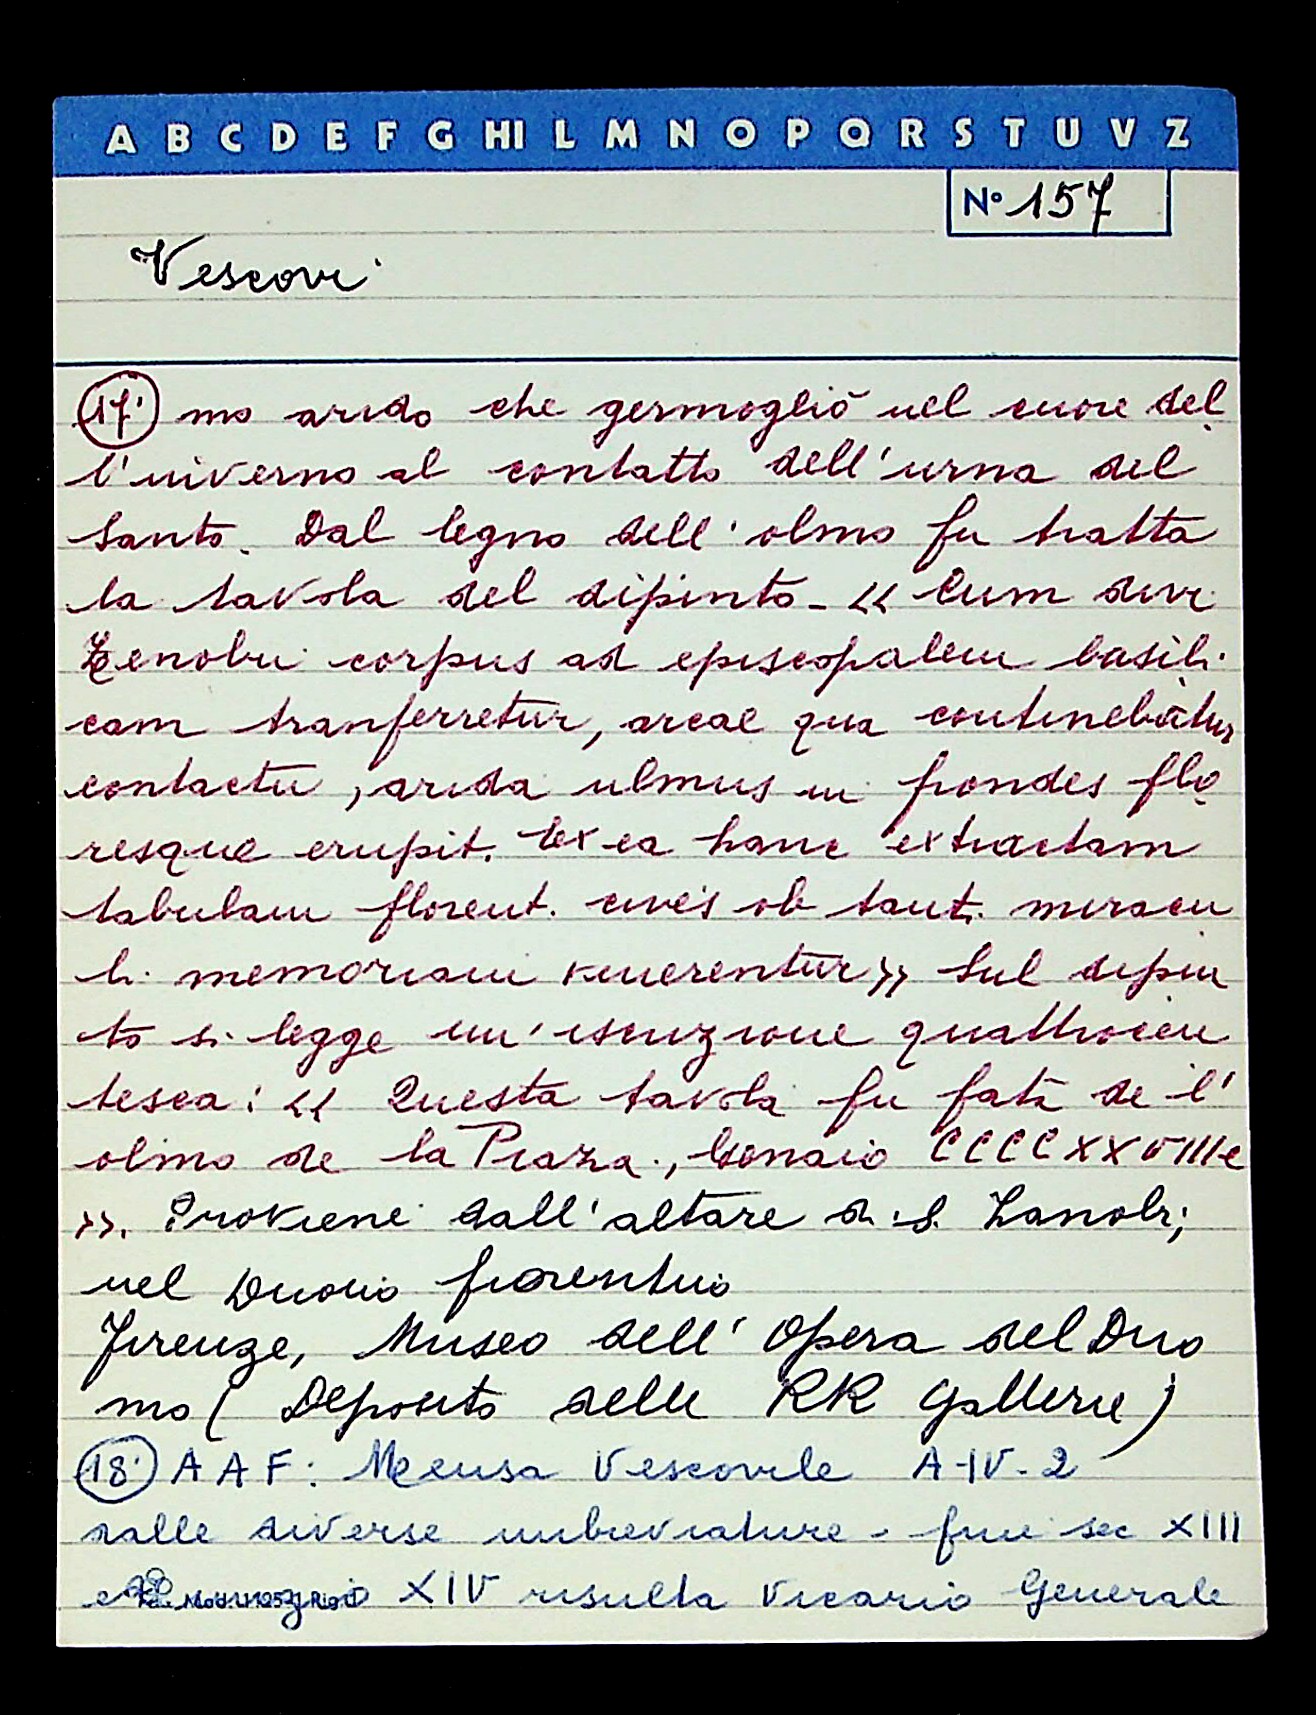 A B C D E F G HI L M N O P Q R S T U V Z
N° 157
Vescovi
17 mo arido che germogliò nel cuore del
l'inverno al contatto dell'urna del
Santo. Dal legno dell'olmo fu tratta
la tavola del dipinto - << Cum divi
Zenobii corpus ad episcopalem basili
cam tranferretur, arcae qua continebatur
contactu, arida ulmus in frondes flo
resque erupit. Ex ea hanc extractam
tabulam florent. cives ob tant. miracu
li memoriam >> Sul dipin
to si legge un'iscrizione quattrocen
tesca: << Questa tavola fu fata de l'
olmo de la Piaza., Genaio CCCCXXVIII e
>>. Proviene dall'altare di S. Zanobi,
nel Duomo fiorentino
Firenze, Museo dell'Opera del Duo
mo ( Deposito delle RR Gallerie )
18 A A F: Mensa Vescovile A-IV-2
dalle diverse imbreviature - fine sec XIII
e XIV risulta Vicario Generale